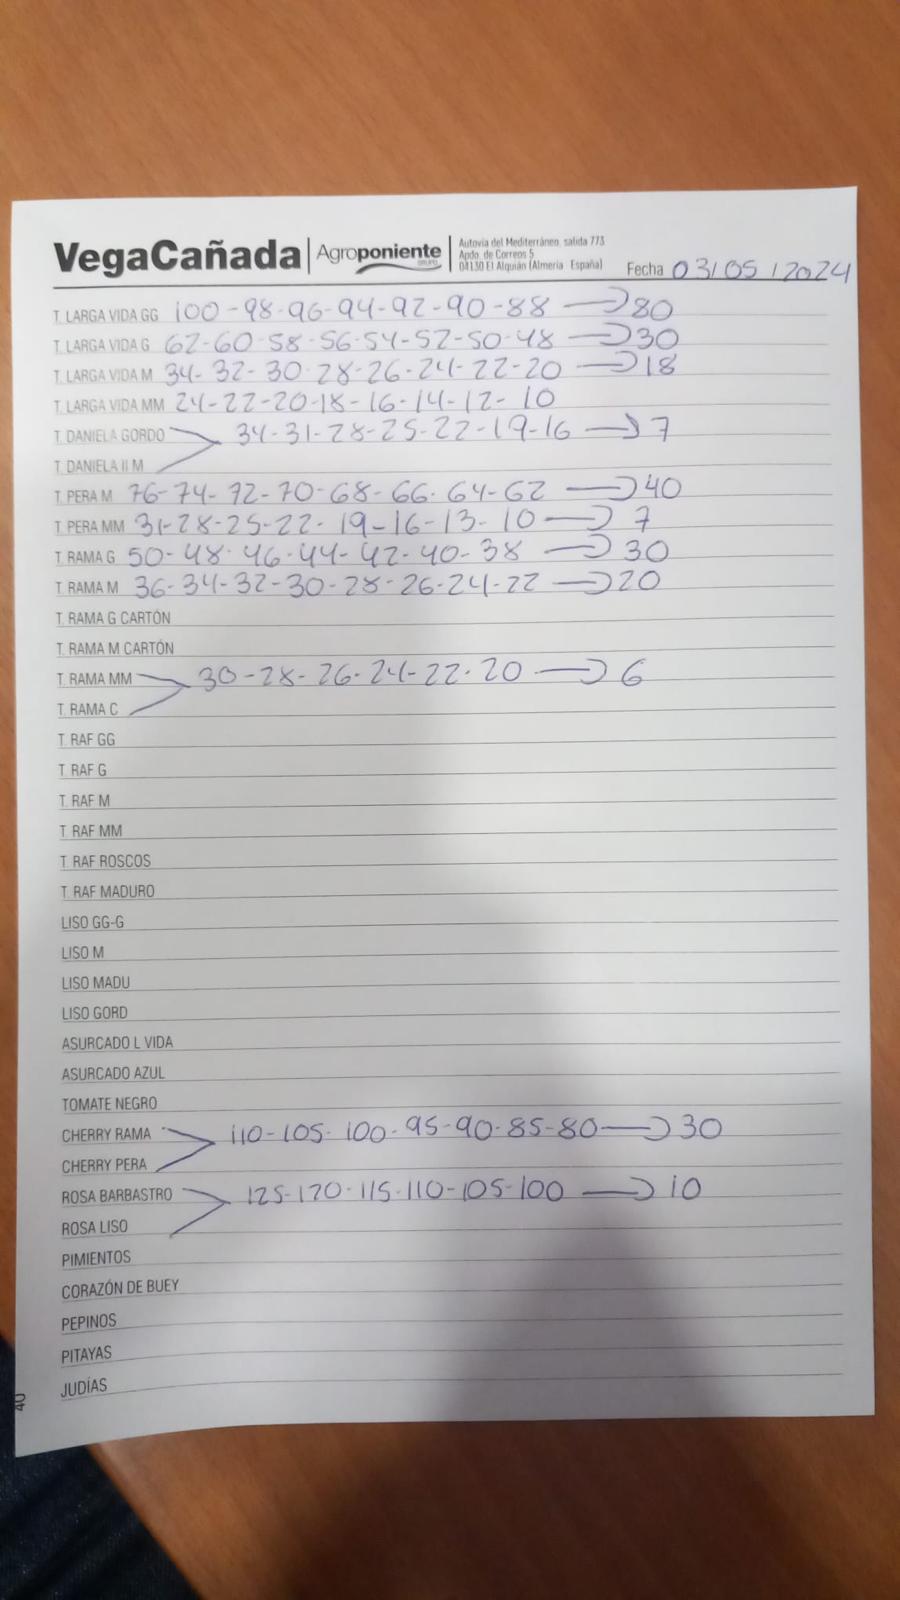 VegaCañada Agroponiente GRUPO
Autovía del Mediterráneo, salida 773
Apdo. de Correos 5
04130 El Alquián (Almería España)
Fecha 03/05/2024
T. LARGA VIDA GG 100-98-96-94-92-90-88 → 80
T. LARGA VIDA G 62-60-58-56-54-52-50-48 → 30
T. LARGA VIDA M 34-32-30-28-26-24-22-20 → 18
T. LARGA VIDA MM 24-22-20-18-16-14-12-10
T. DANIELA GORDO 34-31-28-25-22-19-16 → 7
T. DANIELA II M
T. PERA M 76-74-72-70-68-66-64-62 → 40
T. PERA MM 31-28-25-22-19-16-13-10 → 7
T. RAMA G 50-48-46-44-42-40-38 → 30
T. RAMA M 36-34-32-30-28-26-24-22 → 20
T. RAMA G CARTÓN
T. RAMA M CARTÓN
T. RAMA MM 30-28-26-24-22-20 → 6
T. RAMA C
T. RAF GG
T. RAF G
T. RAF M
T. RAF MM
T. RAF ROSCOS
T. RAF MADURO
LISO GG-G
LISO M
LISO MADU
LISO GORD
ASURCADO L VIDA
ASURCADO AZUL
TOMATE NEGRO
CHERRY RAMA 110-105-100-95-90-85-80 → 30
CHERRY PERA
ROSA BARBASTRO 125-120-115-110-105-100 → 10
ROSA LISO
PIMIENTOS
CORAZÓN DE BUEY
PEPINOS
PITAYAS
JUDÍAS
40